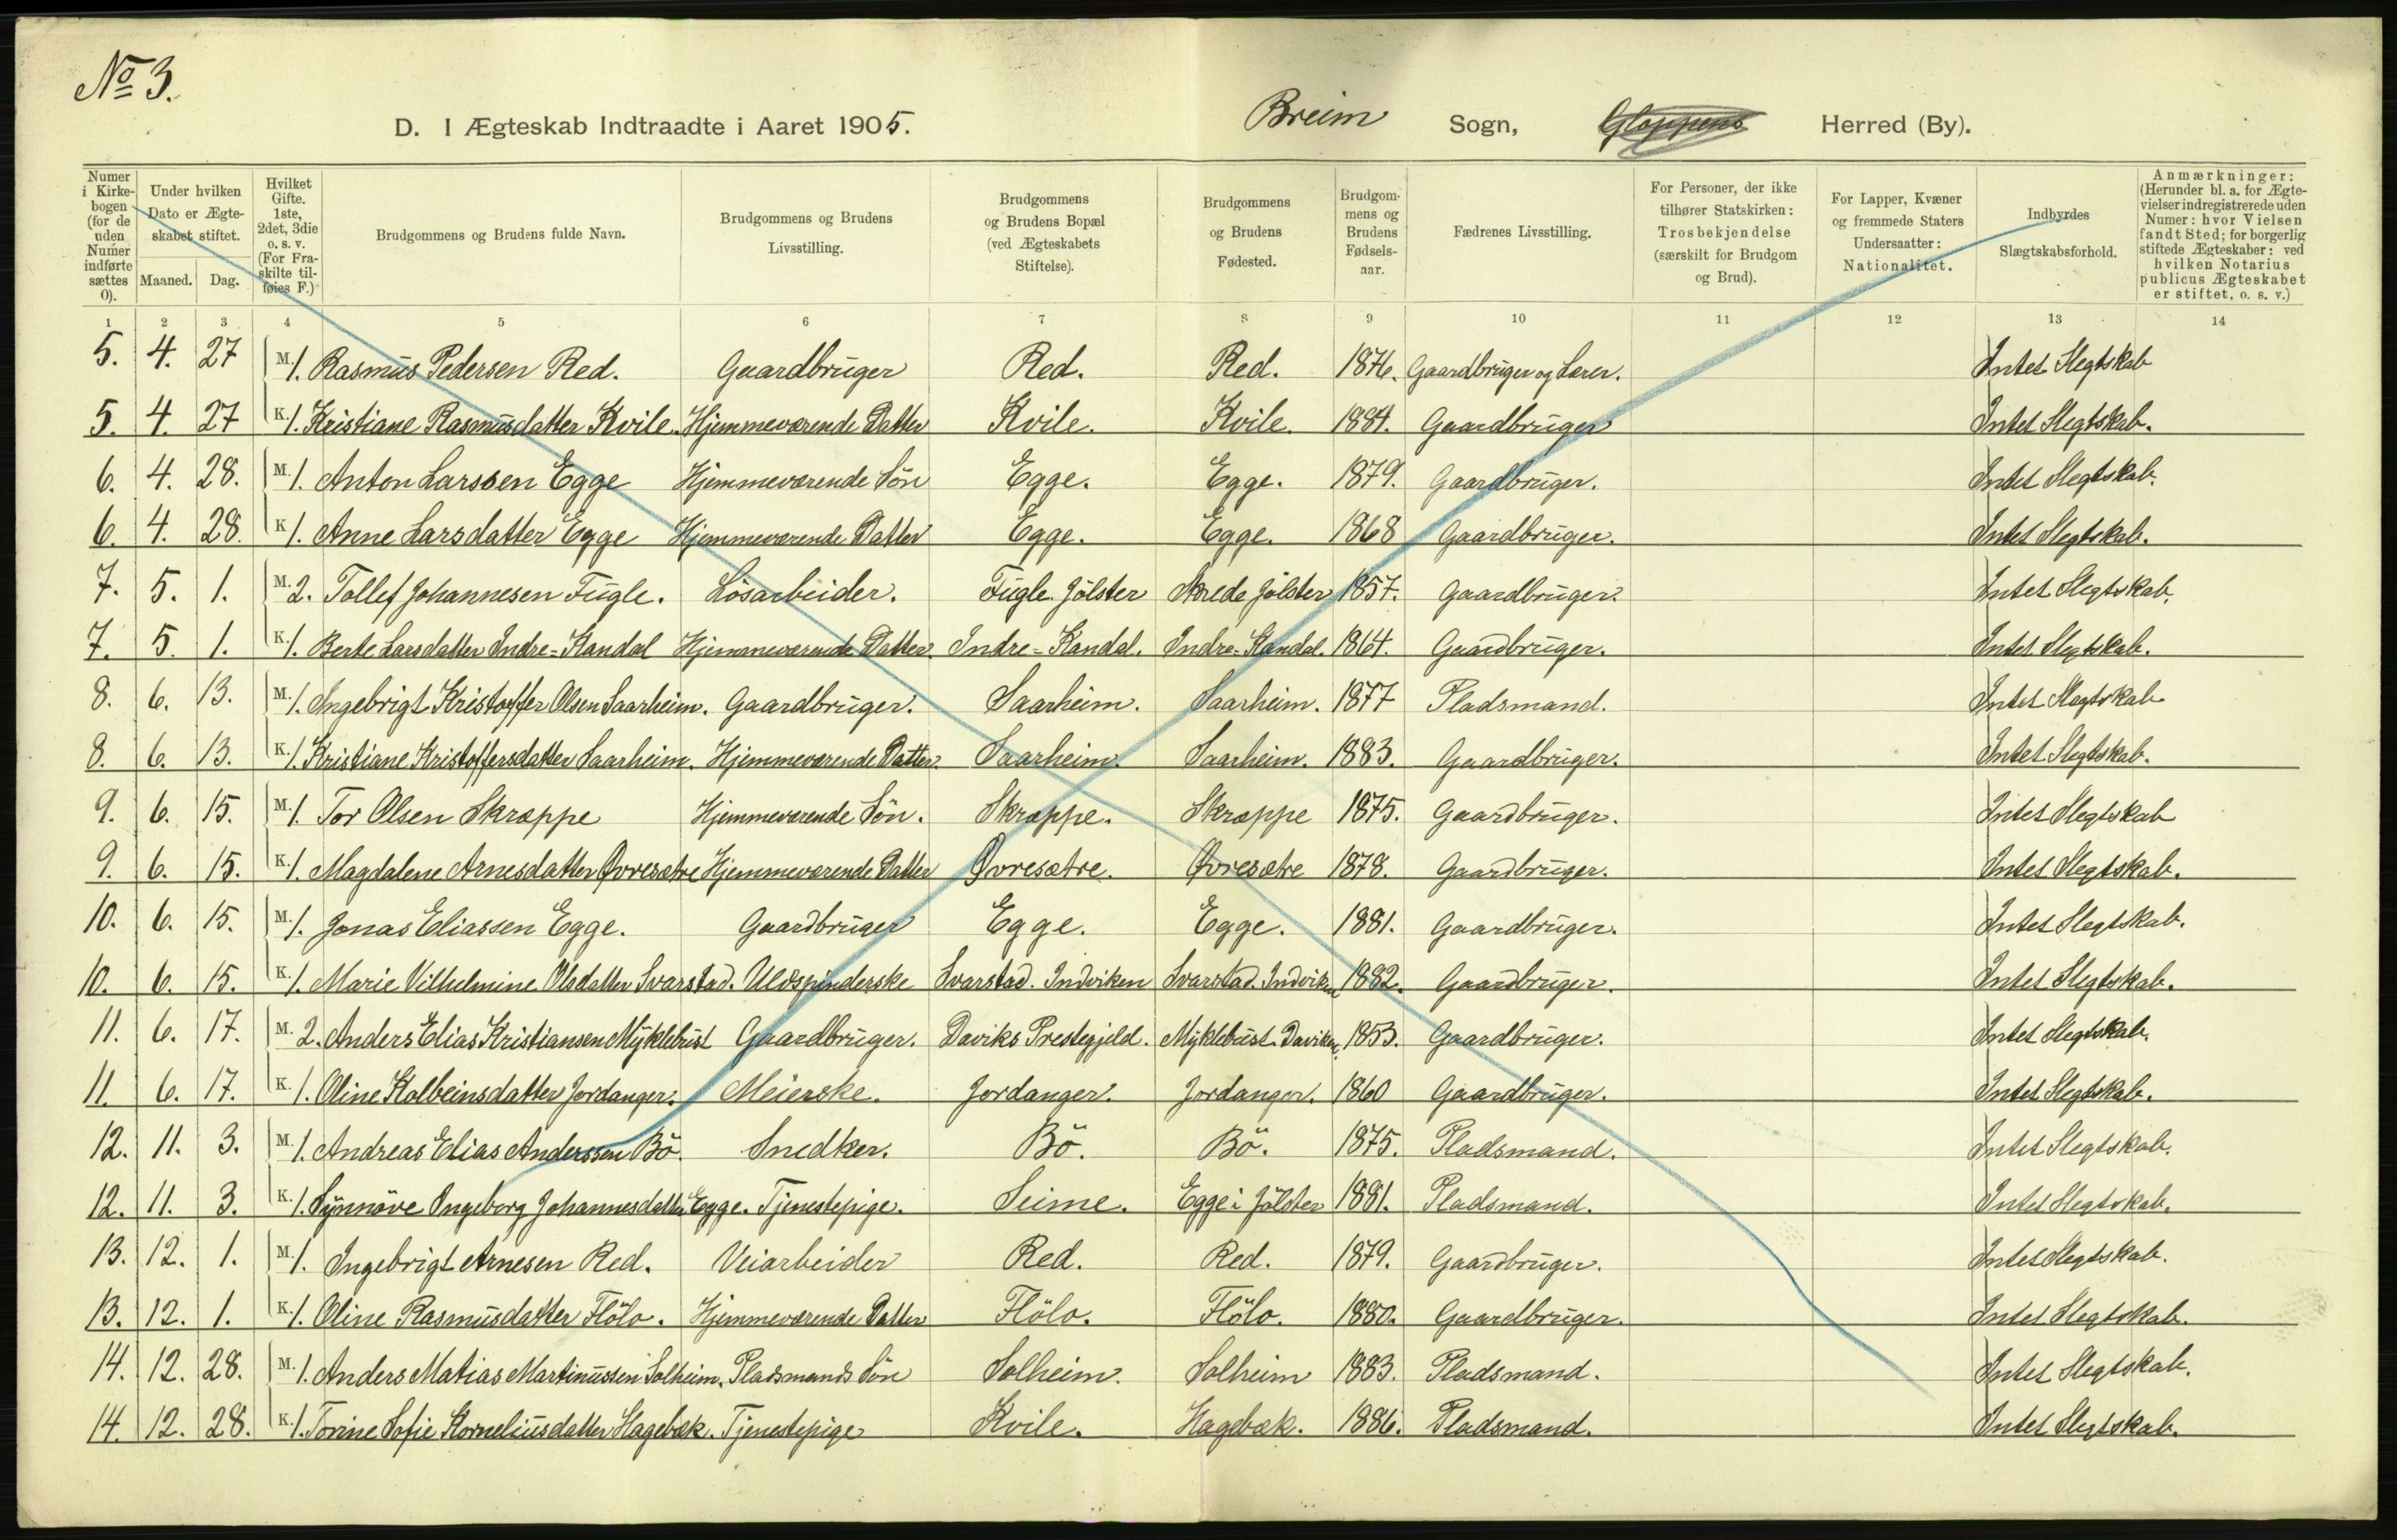 No 3.
D. I Ægteskab Indtraadte i Aaret 1905. Breim Sogn, Gloppens Herred (By).
Numer i Kirkebogen (for de uden Numer indførte sættes 0).
Under hvilken Dato er Ægteskabet stiftet.
Maaned. Dag.
Hvilket Gifte. 1ste, 2det, 3die o. s. v. (For Fraskilte tilføies F.)
Brudgommens og Brudens fulde Navn.
Brudgommens og Brudens Livsstilling.
Brudgommens og Brudens Bopæl (ved Ægteskabets Stiftelse).
Brudgommens og Brudens Fødested.
Brudgommens og Brudens Fødselsaar.
Fædrenes Livsstilling.
For Personer, der ikke tilhører Statskirken: Trosbekjendelse (særskilt for Brudgom og Brud).
For Lapper, Kvæner og fremmede Staters Undersaatter: Nationalitet.
Indbyrdes Slægtskabsforhold.
Anmærkninger: (Herunder bl. a. for Ægtevielser indregistrerede uden Numer: hvor Vielsen fandt Sted; for borgerlig stiftede Ægteskaber: ved hvilken Notarius publicus Ægteskabet er stiftet, o. s. v.)
1 2 3 4 5 6 7 8 9 10 11 12 13 14
5. 4. 27 M. 1. Rasmus Pedersen Red. Gaardbruger Red. Red. 1876. Gaardbruger og Lærer. Intet Slegtskab
5. 4. 27 K. 1. Kristiane Rasmusdatter Kvile. Hjemmeværende Datter Kvile. Kvile. 1884. Gaardbruger Intet Slegtskab.
6. 4. 28. M. 1. Anton Larssen Egge Hjemmeværende Søn Egge. Egge. 1879. Gaardbruger. Intet Slegtskab.
6. 4. 28. K. 1. Anne Larsdatter Egge Hjemmeværende Datter Egge. Egge. 1868 Gaardbruger. Intet Slegtskab.
7. 5. 1. M. 2. Tollef Johannesen Fugle. Løsarbeider. Fugle. Jølster Aarede Jølster 1857. Gaardbruger. Intet Slegtskab.
7. 5. 1. K. 1. Berte Larsdatter Indre=Kandal Hjemmeværende Datter. Indre=Kandal. Indre=Kandal. 1864. Gaardbruger. Intet Slegtskab.
8. 6. 13. M. 1. Ingebrigt Kristoffer Olsen Saarheim. Gaardbruger. Saarheim. Saarheim. 1877 Pladsmand. Intet Slegtskab
8. 6. 13. K. 1. Kristiane Kristoffersdatter Saarheim. Hjemmeværende Datter. Saarheim. Saarheim. 1883. Gaardbruger. Intet Slegtskab.
9. 6. 15. M. 1. Tor Olsen Skræppe Hjemmeværende Søn. Skræppe. Skræppe 1875. Gaardbruger. Intet Slegtskab
9. 6. 15. K. 1. Magdalene Arnesdatter Øvresætre Hjemmeværende Datter Øvresætre. Øvresætre 1878. Gaardbruger. Intet Slegtskab.
10. 6. 15. M. 1. Jonas Eliassen Egge. Gaardbruger Egge. Egge. 1881. Gaardbruger. Intet Slegtskab.
10. 6. 15. K. 1. Marie Vilhelmine Olsdatter Svarstad. Uldspinderske Svarstad. Indviken Svarstad. Indviken 1882. Gaardbruger. Intet Slegtskab.
11. 6. 17. M. 2. Anders Elias Kristiansen Myklebust Gaardbruger. Daviks Prestegjeld. Myklebust Daviken. 1853. Gaardbruger. Intet Slegtskab.
11. 6. 17. K. 1. Oline Kolbeinsdatter Jordanger. Meierske. Jordanger. Jordanger. 1860 Gaardbruger. Intet Slegtskab.
12. 11. 3. M. 1. Andreas Elias Anderssen Bö. Snedker. Bö. Bö. 1875. Pladsmand. Intet Slegtskab.
12. 11. 3. K. 1. Synnöve Ingeborg Johannesdatter Egge. Tjenestepige. Seime. Egge i Jölster 1881. Pladsmand. Intet Slegtskab.
13. 12. 1. M. 1. Ingebrigt Arnesen Red. Veiarbeider Red. Red. 1879. Gaardbruger. Intet Slegtskab.
13. 12. 1. K. 1. Oline Rasmusdatter Flölo. Hjemmeværende Datter Flölo. Flölo. 1880. Gaardbruger. Intet Slegtskab.
14. 12. 28. M. 1. Anders Matias Martinussen Solheim. Pladsmands Sön Solheim. Solheim 1883. Pladsmand. Intet Slegtskab.
14. 12. 28. K. 1. Torine Sofie Korneliusdatter Hagebæk. Tjenestepige Kvile. Hagebæk. 1886. Pladsmand. Intet Slegtskab.